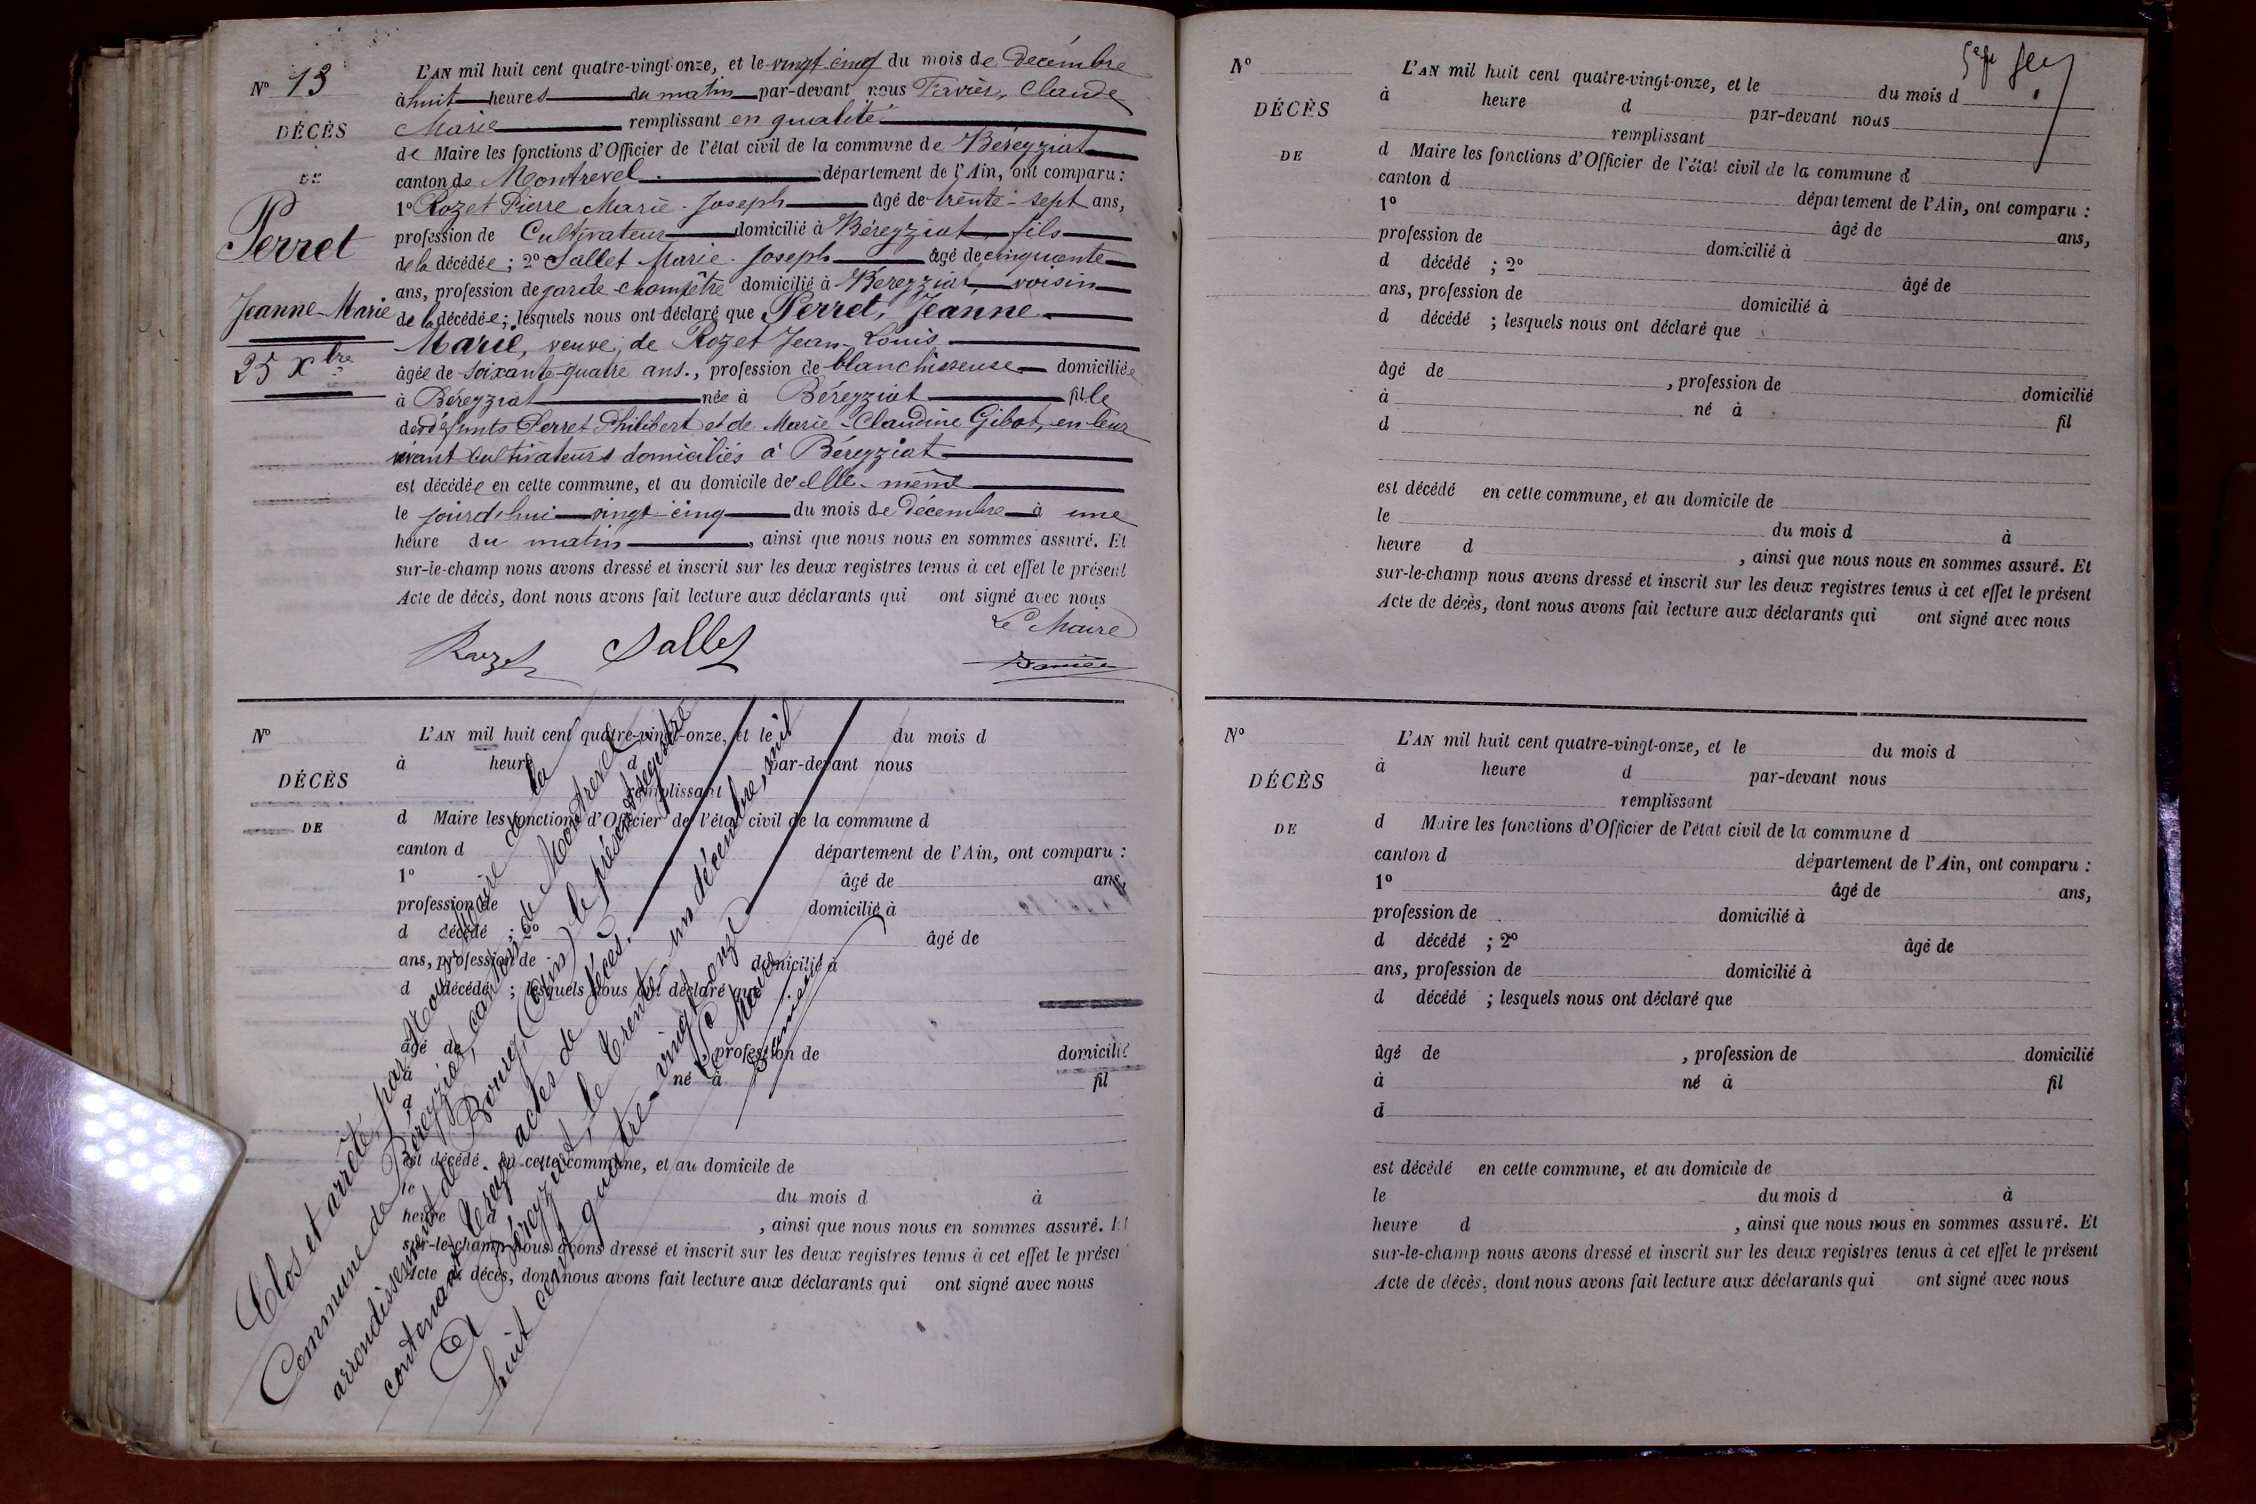 N° 13
DÉCÈS
DE
Perret
Jeanne-Marie
25 Xbre
L'AN mil huit cent quatre-vingt-onze, et le vingt cinq du mois de décembre
à huit heures du matin par-devant nous Favier, Claude
Marie remplissant en qualité
de Maire les fonctions d'Officier de l'état civil de la commune de Béreyziat
canton de Montrevel département de l'Ain, ont comparu :
1° Rozet Pierre Marie-Joseph âgé de trente-sept ans,
profession de Cultivateur domicilié à Béreyziat fils
de la décédée ; 2° Sallet Marie-Joseph âgé de cinquante
ans, profession de garde-champêtre domicilié à Béreyziat voisin
de la décédée ; lesquels nous ont déclaré que Perret, Jeanne
Marie, veuve de Rozet Jean-Louis
âgée de soixante-quatre ans., profession de blanchisseuse domiciliée
à Béreyziat née à Béreyziat fille
de défunts Perret Philibert et de Marie-Claudine Gibot, en leur
vivant cultivateurs domiciliés à Béreyziat
est décédée en cette commune, et au domicile de elle-même
le jourd'hui vingt-cinq du mois de Décembre à une
heure du matin, ainsi que nous nous en sommes assuré. Et
sur-le-champ nous avons dressé et inscrit sur les deux registres tenus à cet effet le présent
Acte de décès, dont nous avons fait lecture aux déclarants qui ont signé avec nous
Le Maire
Rozet Sallet
N°
DÉCÈS
DE
L'AN mil huit cent quatre-vingt-onze, et le du mois d
à heure d par-devant nous
remplissant
d Maire les fonctions d'Officier de l'état civil de la commune d
canton d département de l'Ain, ont comparu :
1° âgé de ans,
profession de domicilié à
d décédé ; 2° âgé de
ans, profession de domicilié à
d décédé ; lesquels nous ont déclaré que
âgé de , profession de domicilié
à né à fil
d
est décédé en cette commune, et au domicile de
le du mois d à
heure d , ainsi que nous nous en sommes assuré. Et
sur-le-champ nous avons dressé et inscrit sur les deux registres tenus à cet effet le présen
Acte de décès, dont nous avons fait lecture aux déclarants qui ont signé avec nous
Clos et arrêté, par Nous, Maire de la
Commune de Béreyziat, canton de Montrevel
arrondissement de Bourg, (Ain) le présent registre
contenant treize actes de décès.
A Béreyziat, le trente-un décembre, mil
huit cent quatre-vingt onze
Le Maire
N°
DÉCÈS
DE
L'AN mil huit cent quatre-vingt-onze, et le du mois d
à heure d par-devant nous
remplissant
d Maire les fonctions d'Officier de l'état civil de la commune d
canton d département de l'Ain, ont comparu :
1° âgé de ans,
profession de domicilié à
d décédé ; 2° âgé de
ans, profession de domicilié à
d décédé ; lesquels nous ont déclaré que
âgé de , profession de domicilié
à né à fil
d
est décédé en cette commune, et au domicile de
le du mois d à
heure d , ainsi que nous nous en sommes assuré. Et
sur-le-champ nous avons dressé et inscrit sur les deux registres tenus à cet effet le présent
Acte de décès, dont nous avons fait lecture aux déclarants qui ont signé avec nous
N°
DÉCÈS
DE
L'AN mil huit cent quatre-vingt-onze, et le du mois d
à heure d par-devant nous
remplissant
d Maire les fonctions d'Officier de l'état civil de la commune d
canton d département de l'Ain, ont comparu :
1° âgé de ans,
profession de domicilié à
d décédé ; 2° âgé de
ans, profession de domicilié à
d décédé ; lesquels nous ont déclaré que
âgé de , profession de domicilié
à né à fil
d
est décédé en cette commune, et au domicile de
le du mois d à
heure d , ainsi que nous nous en sommes assuré. Et
sur-le-champ nous avons dressé et inscrit sur les deux registres tenus à cet effet le présent
Acte de décès, dont nous avons fait lecture aux déclarants qui ont signé avec nous